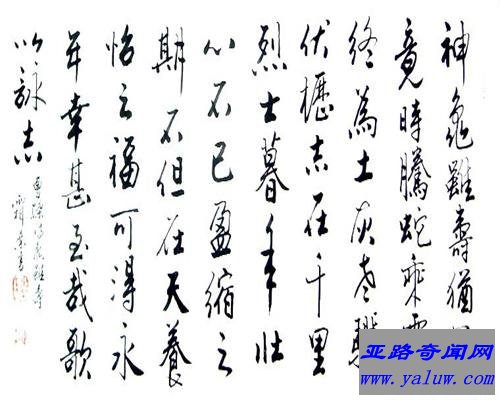 神龜雖壽猶
竟時騰蛇乘
終為土灰老驥
伏櫪志在千里
烈士暮年壯
心不已盈縮之
期不但在天養
怡之福可得永
年幸甚至哉歌
以詠志
曹操詩龜雖壽
亚路奇闻网
www.yaluw.com